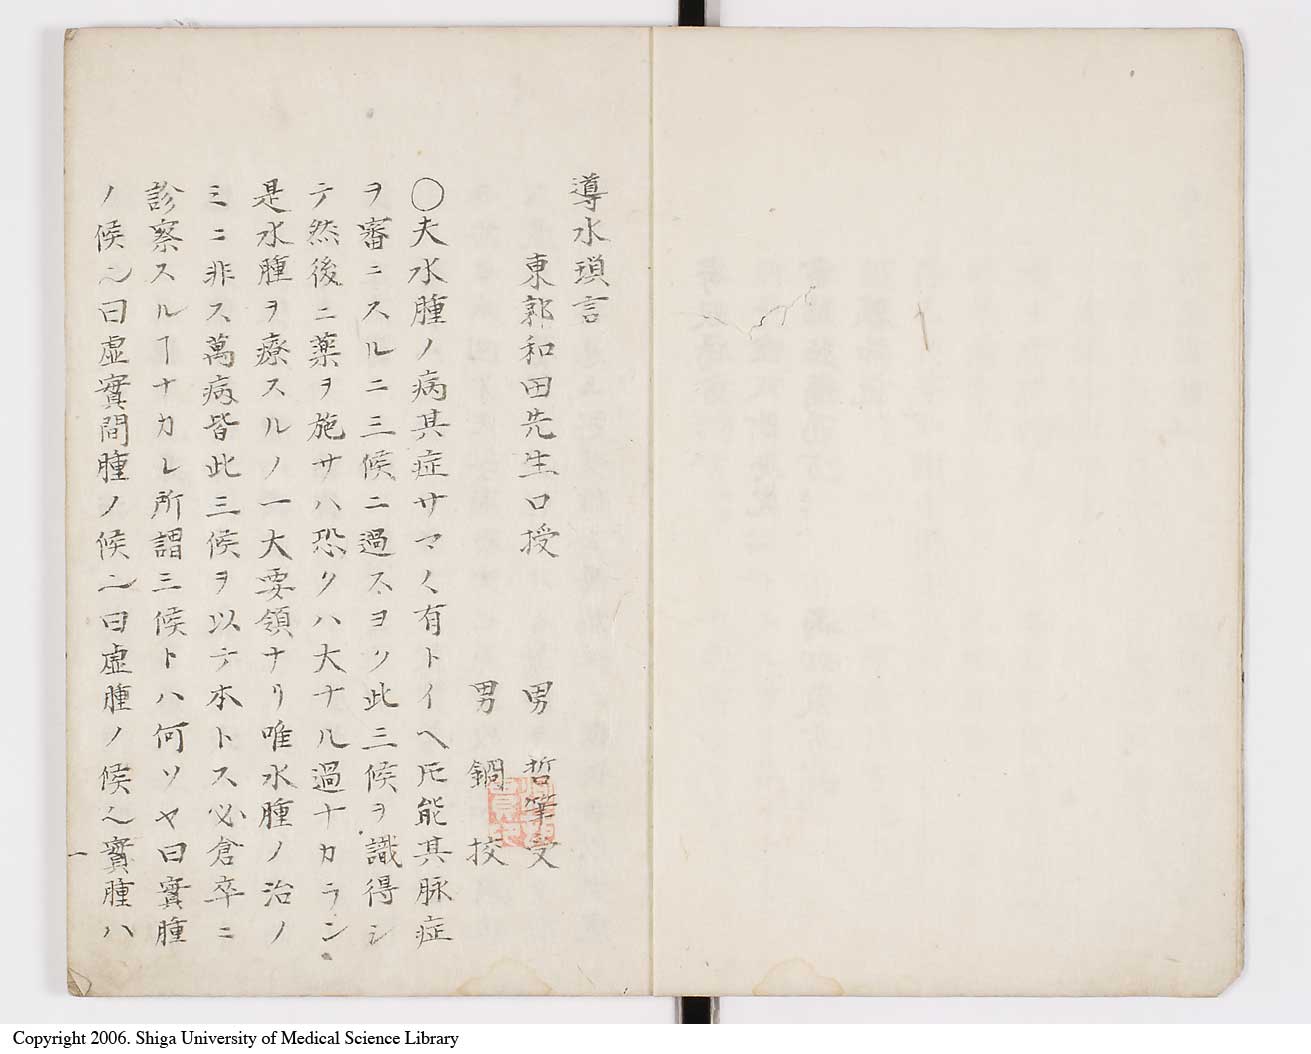 導水瑣言
東郭和田先生口授
男 哲 筆受
男 鋼 挍
〇夫水腫ノ病其症サマ〱有トイヘ𪜈能其脉症
ヲ審ニスルニ三候ニ過スヨク此三候ヲ識得シ
テ然後ニ薬ヲ施サハ恐クハ大ナル過ナカラン
是水腫ヲ療スルノ一大要領ナリ唯水腫ノ治ノ
ミニ非ス萬病皆此三候ヲ以テ本トス必倉卒ニ
診察スルヿナカレ所謂三候トハ何ソヤ曰實腫
ノ候ニ曰虚實間腫ノ候ニ曰虚腫ノ候ヘ實腫ハ
一
Copyright 2006. Shiga University of Medical Science Library